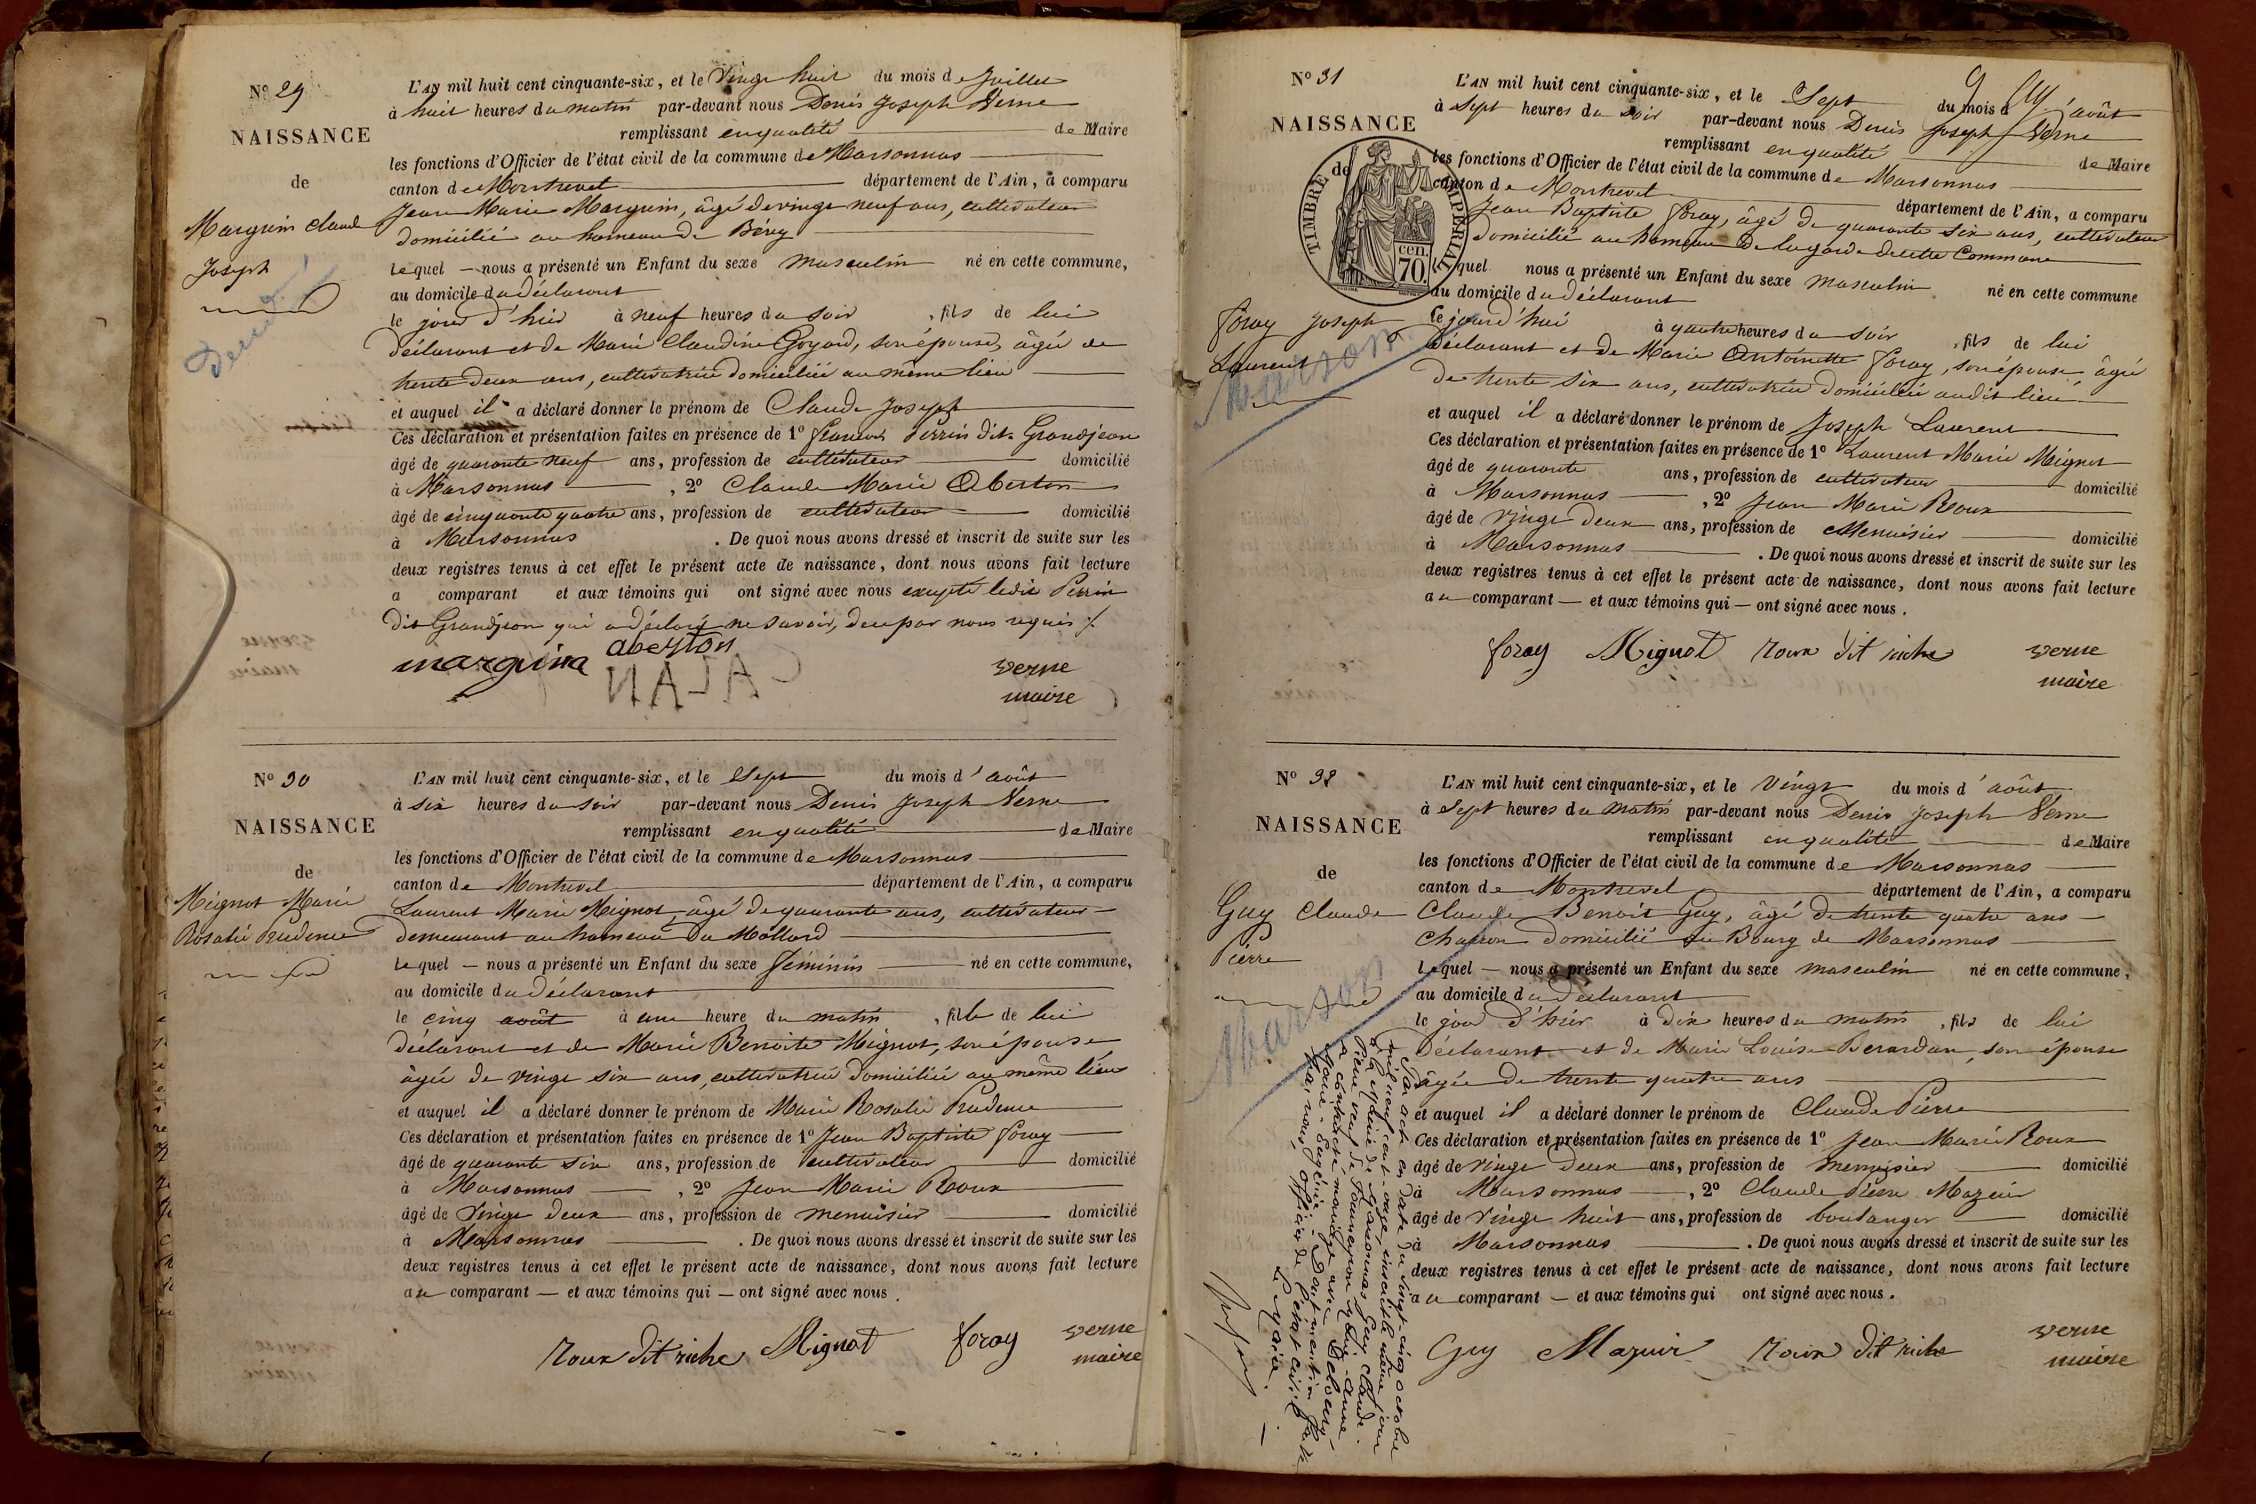 Nº 29
NAISSANCE
de
Marguin Claude
Joseph
L'AN mil huit cent cinquante-six, et le Vingt huit du mois de Juillet
à huit heures du matin par-devant nous Denis Joseph Verne
remplissant en qualité de Maire
les fonctions d'Officier de l'état civil de la commune de Marsonnas
canton de Montrevel département de l'Ain, a comparu
Jean Marie Marguin, âgé de vingt neuf ans, cultivateur
domicilié au hameau de Béréy
lequel — nous a présenté un Enfant du sexe masculin né en cette commune,
au domicile du déclarant
le jour d'hier à neuf heures du soir , fils de lui
déclarant et de Marie Claudine Goyard, son épouse, âgée de
trente deux ans, cultivatrice domiciliée au même lieu
et auquel il a déclaré donner le prénom de Claude Joseph
Ces déclaration et présentation faites en présence de 1º François Perrin dit Grandjean
âgé de quarante neuf ans, profession de cultivateur domicilié
à Marsonnas , 2º Claude Marie Aberton
âgé de cinquante quatre ans, profession de cultivateur domicilié
à Marsonnas . De quoi nous avons dressé et inscrit de suite sur les
deux registres tenus à cet effet le présent acte de naissance, dont nous avons fait lecture
a comparant et aux témoins qui ont signé avec nous excepté ledit Perrin
dit Grandjean qui a déclaré ne savoir, de ce par nous requis
marguin aberton verne
maire
Nº 30
NAISSANCE
de
Mignot Marie
Rosalie Prudence
L'AN mil huit cent cinquante-six, et le Sept du mois d'août
à six heures du soir par-devant nous Denis Joseph Verne
remplissant en qualité de Maire
les fonctions d'Officier de l'état civil de la commune de Marsonnas
canton de Montrevel département de l'Ain, a comparu
Laurent Marie Mignot, âgé de quarante ans, cultivateur
demeurant au hameau du Mollard
lequel — nous a présenté un Enfant du sexe féminin né en cette commune,
au domicile du déclarant
le cinq août à une heure du matin , fille de lui
déclarant et de Marie Benoite Mignot, son épouse
âgée de vingt six ans, cultivatrice domiciliée au même lieu
et auquel il a déclaré donner le prénom de Marie Rosalie Prudence
Ces déclaration et présentation faites en présence de 1º Jean Baptiste foray
âgé de quarante six ans, profession de cultivateur domicilié
à Marsonnas , 2º Jean Marie Roux
âgé de Vingt deux ans, profession de menuisier domicilié
à Marsonnas . De quoi nous avons dressé et inscrit de suite sur les
deux registres tenus à cet effet le présent acte de naissance, dont nous avons fait lecture
au comparant — et aux témoins qui — ont signé avec nous.
roux dit riche Mignot foray verne
maire
Nº 31
NAISSANCE
de
TIMBRE IMPÉRIAL
70 cen.
foray Joseph
Laurent
Marson
L'AN mil huit cent cinquante-six, et le Sept du mois d'août
à Sept heures du soir par-devant nous Denis Joseph Verne
remplissant en qualité de Maire
les fonctions d'Officier de l'état civil de la commune de Marsonnas
canton de Montrevel département de l'Ain, a comparu
Jean Baptiste foray, âgé de quarante six ans, cultivateur
domicilié au hameau de lagarde de cette Commune
lequel nous a présenté un Enfant du sexe masculin né en cette commune
au domicile du déclarant
le jourd'hui à quatre heures du soir , fils de lui
déclarant et de Marie Antoinette foray, son épouse âgée
de trente six ans, cultivatrice domiciliée audit lieu
et auquel il a déclaré donner le prénom de Joseph Laurent
Ces déclaration et présentation faites en présence de 1º Laurent Marie Mignot
âgé de quarante ans, profession de cultivateur domicilié
à Marsonnas , 2º Jean Marie Roux
âgé de vingt deux ans, profession de Menuisier domicilié
à Marsonnas . De quoi nous avons dressé et inscrit de suite sur les
deux registres tenus à cet effet le présent acte de naissance, dont nous avons fait lecture
au comparant — et aux témoins qui — ont signé avec nous.
foray Mignot roux dit riche verne
maire
Nº 32
NAISSANCE
de
Guy Claude
Pierre
Marson
L'AN mil huit cent cinquante-six, et le Vingt du mois d'août
à Sept heures du matin par-devant nous Denis Joseph Verne
remplissant en qualité de Maire
les fonctions d'Officier de l'état civil de la commune de Marsonnas
canton de Montrevel département de l'Ain, a comparu
Claude Benoit Guy, âgé de trente quatre ans
charron domicilié au Bourg de Marsonnas
lequel — nous a présenté un Enfant du sexe masculin né en cette commune,
au domicile du déclarant
le jour d'hier à dix heures du matin , fils de lui
déclarant et de Marie Louise Berardan, son épouse
âgée de trente quatre ans
et auquel il a déclaré donner le prénom de Claude Pierre
Ces déclaration et présentation faites en présence de 1º Jean Marie Roux
âgé de vingt deux ans, profession de menuisier domicilié
à Marsonnas , 2º Claude Pierre Mazuir
âgé de Vingt huit ans, profession de boulanger domicilié
à Marsonnas . De quoi nous avons dressé et inscrit de suite sur les
deux registres tenus à cet effet le présent acte de naissance, dont nous avons fait lecture
au comparant — et aux témoins qui ont signé avec nous.
Guy Mazuir roux dit riche verne
maire
Par acte en date du vingt-cinq octobre
mil neuf cent onze, inscrit le même jour
à la mairie de Marsonnas Guy Claude
Pierre veuf de
a contracté mariage avec
Marie-Eugénie. Dont mention faite
par nous, Officier de l'état civil
Le Maire.